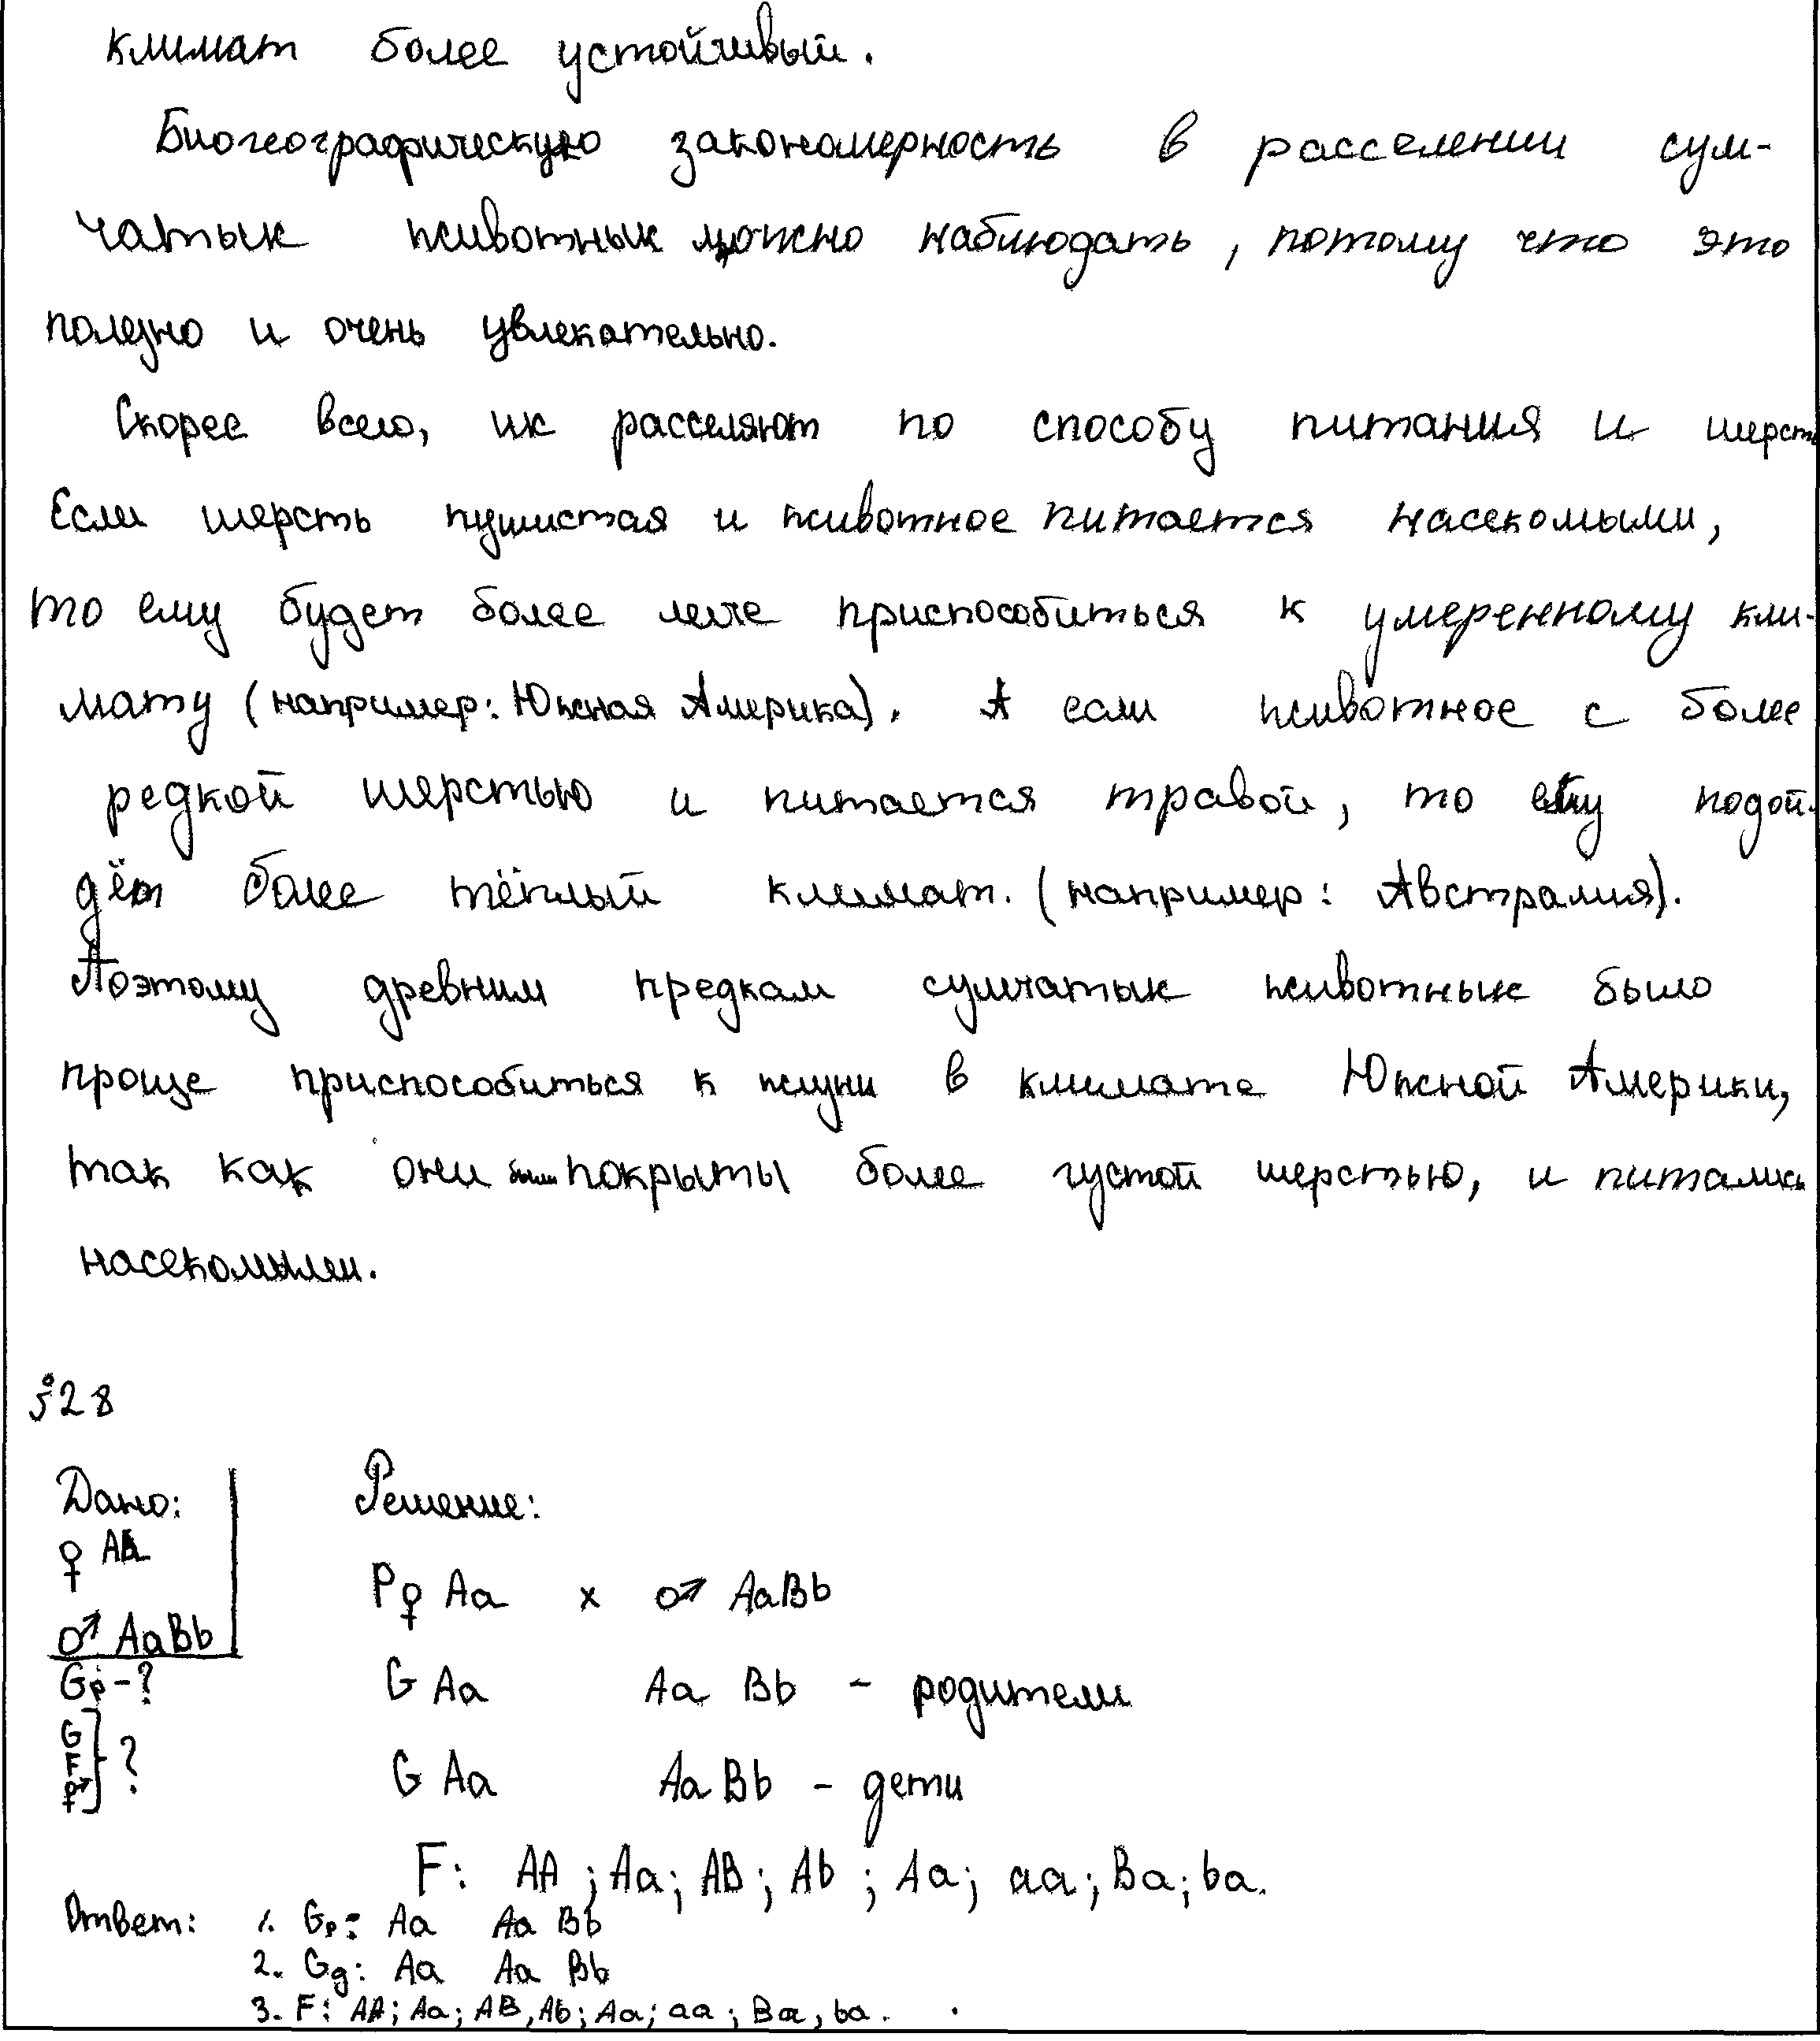 климат более устойчивый.
Биогеографическую закономерность в расселении сум-
чатых животных можно наблюдать, потому что это
полезно и очень увлекательно.
Скорее всего, их расселяют по способу питания и шерсть
Если шерсть пушистая и животное питается насекомыми,
то ему будет более легче приспособиться к умеренному кли-
мату (например: Южная Америка). А если животное с более
редкой шерстью и питается травой, то ему подой-
дёт более тёплый климат. (например: Австралия).
Поэтому древним предкам сумчатых животных было
проще приспособиться к жизни в климате Южной Америки,
так как они были покрыты более густой шерстью, и питались
насекомыми.
28
Дано: Решение:
♀ Aa
P♀ Aa x ♂ AaBb
♂ AaBb
Gp - ? G Aa Aa Bb - родители
G F ♀♂ } ? G Aa Aa Bb - дети
F: AA ; Aa; AB; Ab ; Aa; aa; Ba; ba.
Ответ: 1. Gp: Aa Aa Bb
2. Gg: Aa Aa Bb
3. F: AA; Aa; AB, Ab; Aa; aa; Ba, ba.